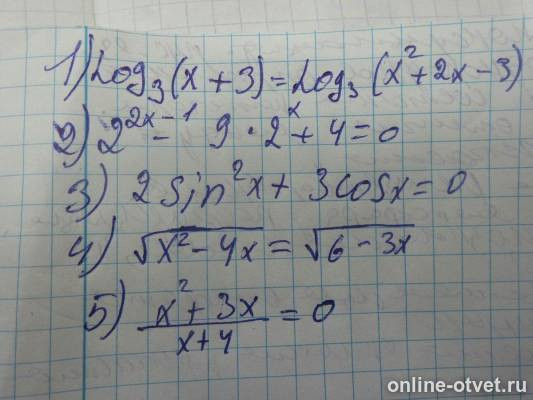 1) Log₃(x + 3) = Log₃(x² + 2x - 3)
2) 2²ˣ⁻¹ - 9 · 2ˣ + 4 = 0
3) 2 sin²x + 3cosx = 0
4) √(x² - 4x) = √(6 - 3x)
5) (x² + 3x)/(x + 4) = 0
online-otvet.ru